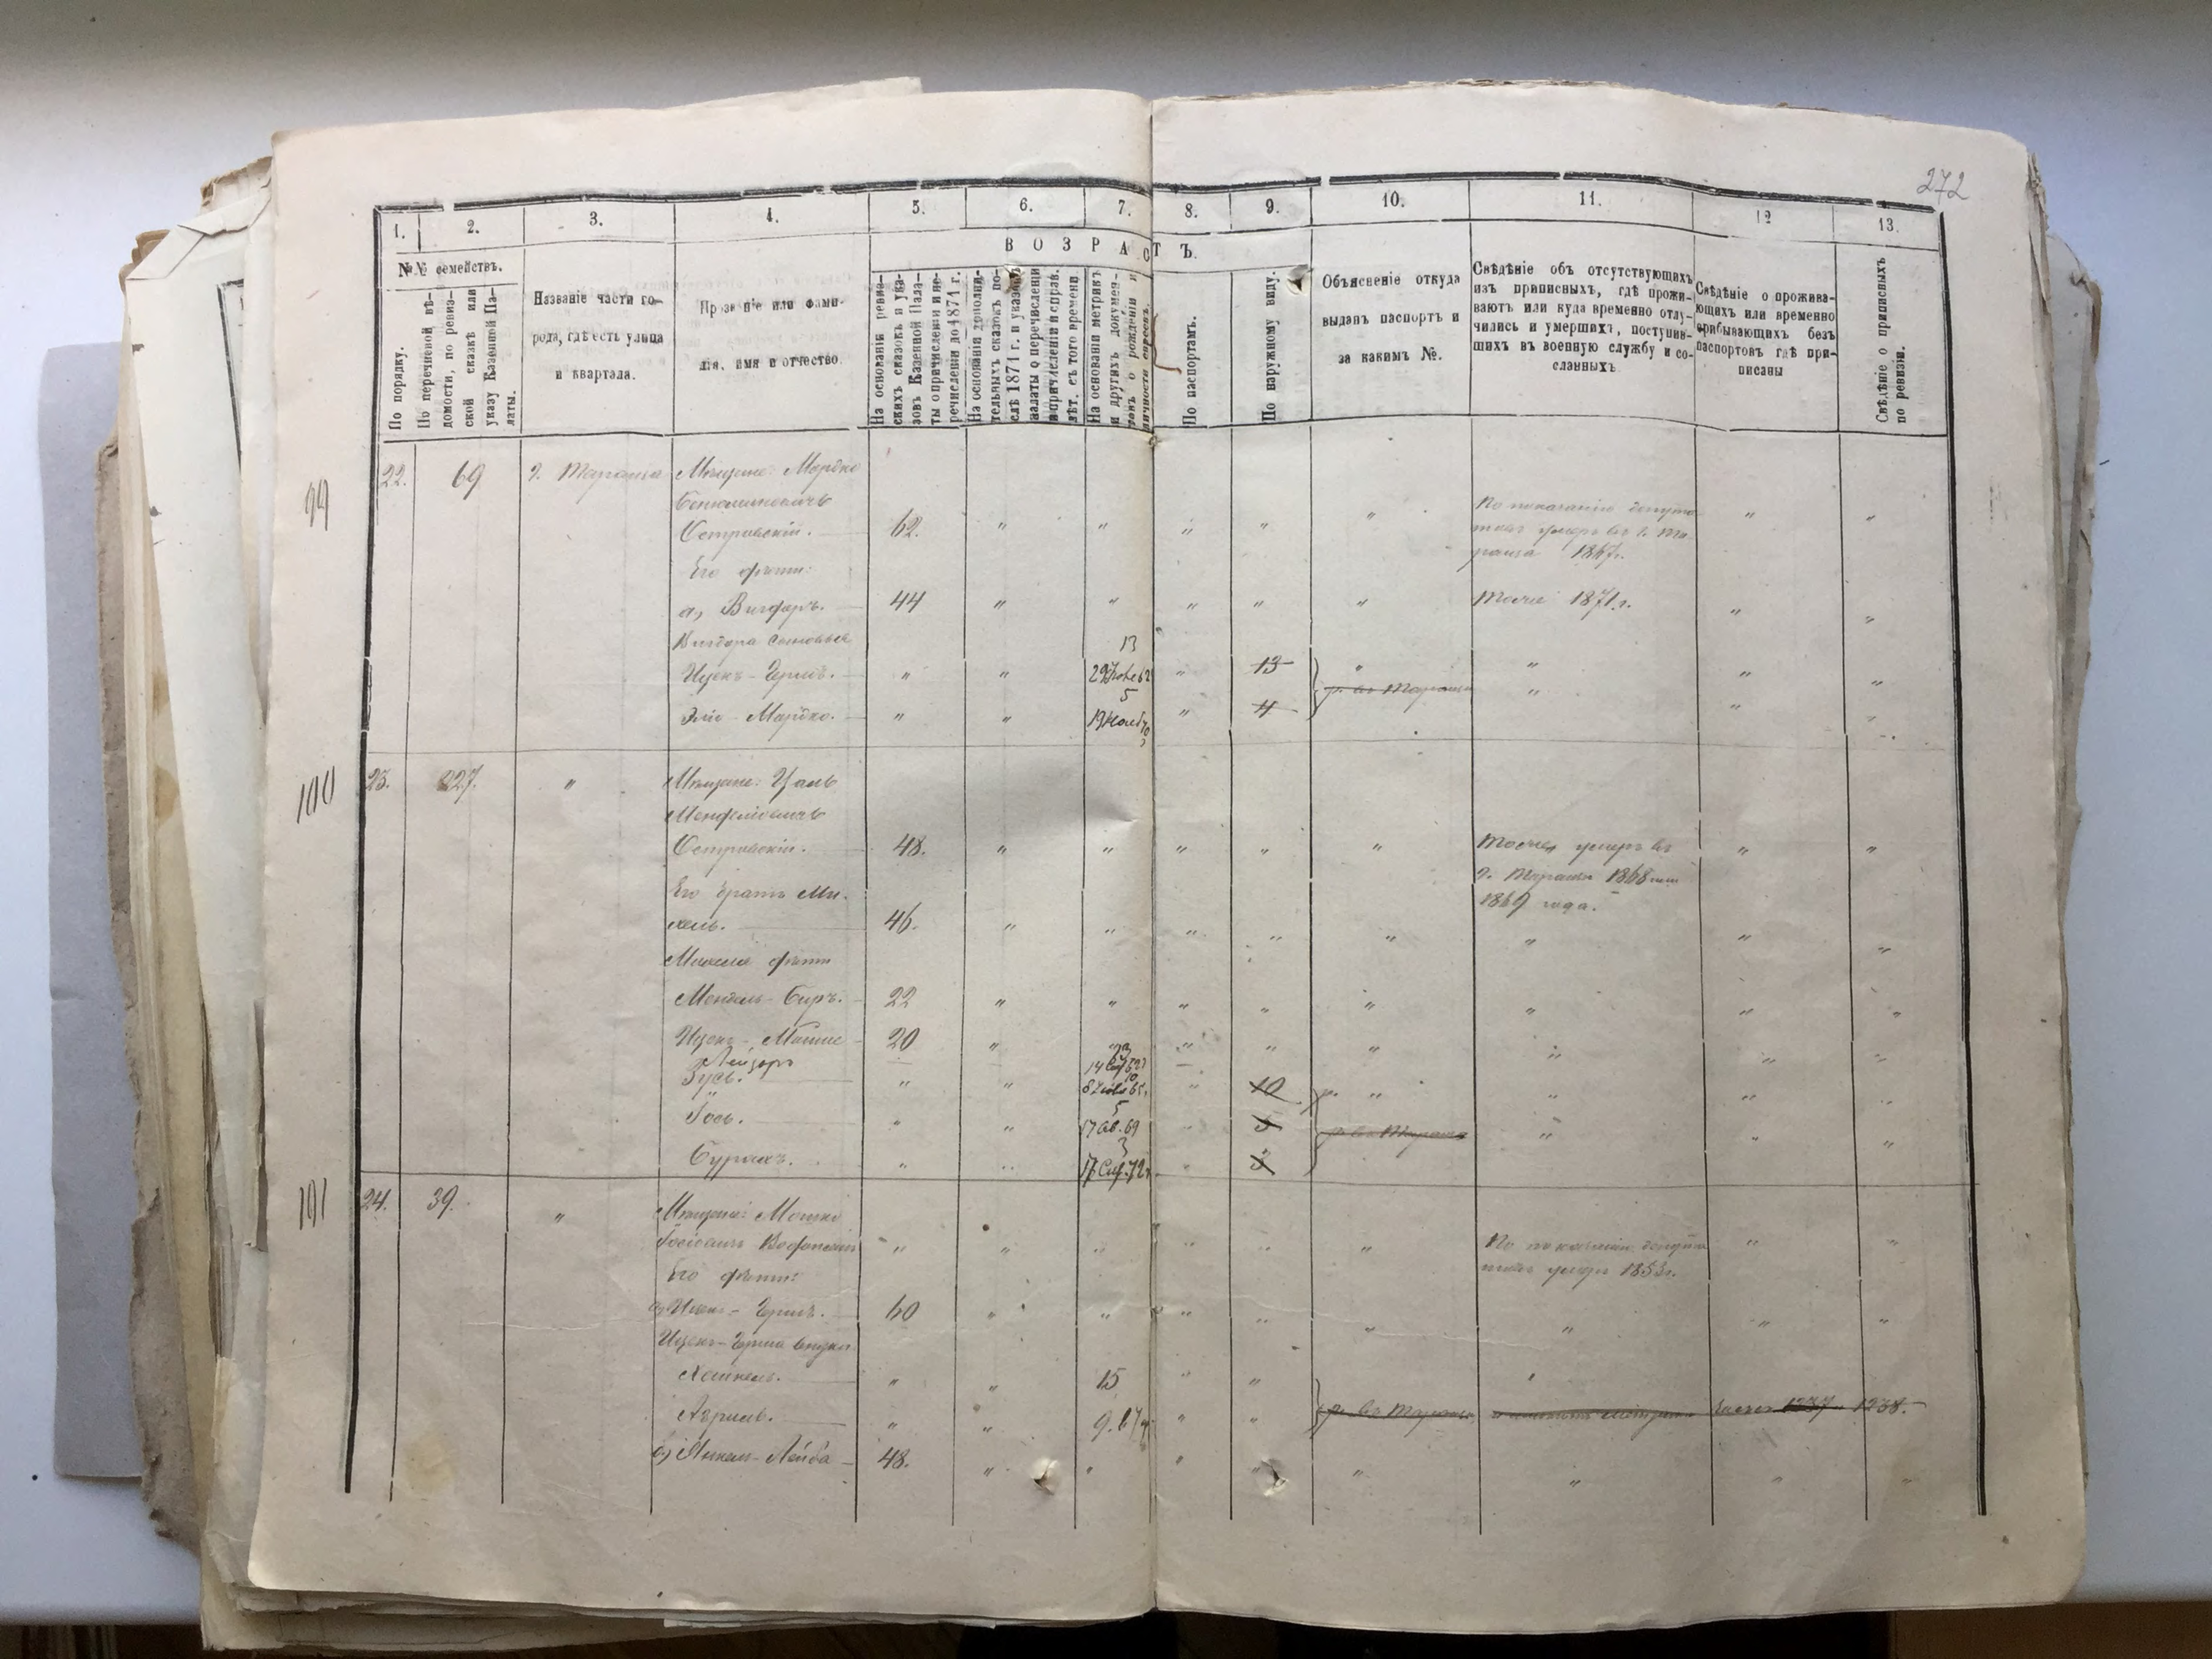 272
1. 2. 3. 4. 5. 6. 7. 8. 9. 10. 11. 12 13.
ВОЗРАСТЪ.
№№ семействъ.
По порядку.
По перечневой вѣ-
домости, по ревиз-
ской сказкѣ или
указу Казенной Па-
латы.
Названіе части го-
рода, гдѣ есть улица
и квартала.
Прозваніе или фами-
лія, имя и отчество.
На основаніи ревиз-
скихъ сказокъ и ука-
зовъ Казенной Пала-
ты о причисленіи и пе-
речисленіи до 1871 г.
На основаніи дополни-
тельныхъ сказокъ по-
слѣ 1871 г. и указовъ
палаты о перечисленіи
и причисленіи и справ.
лѣт. съ того времени.
На основаніи метрикъ
и другихъ докумен-
товъ о рожденіи и
личности евреевъ.
По паспортамъ.
По наружному виду.
Объясненіе откуда
выданъ паспортъ и
за какимъ №.
Свѣдѣніе объ отсутствующихъ
изъ приписныхъ, гдѣ прожи-
ваютъ или куда временно отлу-
чились и умершихъ, поступив-
шихъ въ военную службу и со-
сланныхъ.
Свѣдѣніе о прожива-
ющихъ или временно
прибывающихъ безъ
паспортовъ гдѣ при-
писаны
Свѣдѣніе о приписныхъ
по ревизіи.
99 22. 69 г. Тараща Мѣщане: Мордко
Бенюминовичъ
Островскій. 62. " " " " " По показанію депута
товъ умеръ въ г. Та
раща 1867г.
Его дѣти:
а) Вигдоръ. 44 " " " " " Тоже 1871 г.
Вигдора сыновья
13
Ицекъ-Гершъ. " " 62 " 13 " " " "
5 р. въ Тараща
Эліо-Мордко. " " 19 Нояб 70 " 4 " " "
100 23. 227. " Мѣщане: Цаль
Менделіовичъ
Островскій. 48. " " " " " умеръ въ " "
г. Тараща 1868 или
1869 года.
Его братъ Ми-
хель. 46. " " " " " " " "
Михеля дѣти
Мендель-Беръ. 22 " " " " " " " "
Ицекъ-Мошко 20 " " " " " " " "
Лейзоръ
Зусь. " " 65. " 10 " " " "
5
Іось. " " 17 Ав. 69 " 5 р. въ Тараща " " "
3
Бурахъ. " " 17 72 " 3
101 24. 39. " Мѣщане: Мошко
Іосіовичъ " " " " " " По показанію депута " "
товъ умеръ 1853г.
Его дѣти:
а) Ицекъ-Гершъ. 60 " " " " " " " "
Ицекъ-Герша внуки
Хаимель. " " 15 " " "
Азриль. " " 9. " " р. въ Тараща 1237 1238.
б) Янкель-Лейба 48. " " " " " " " "